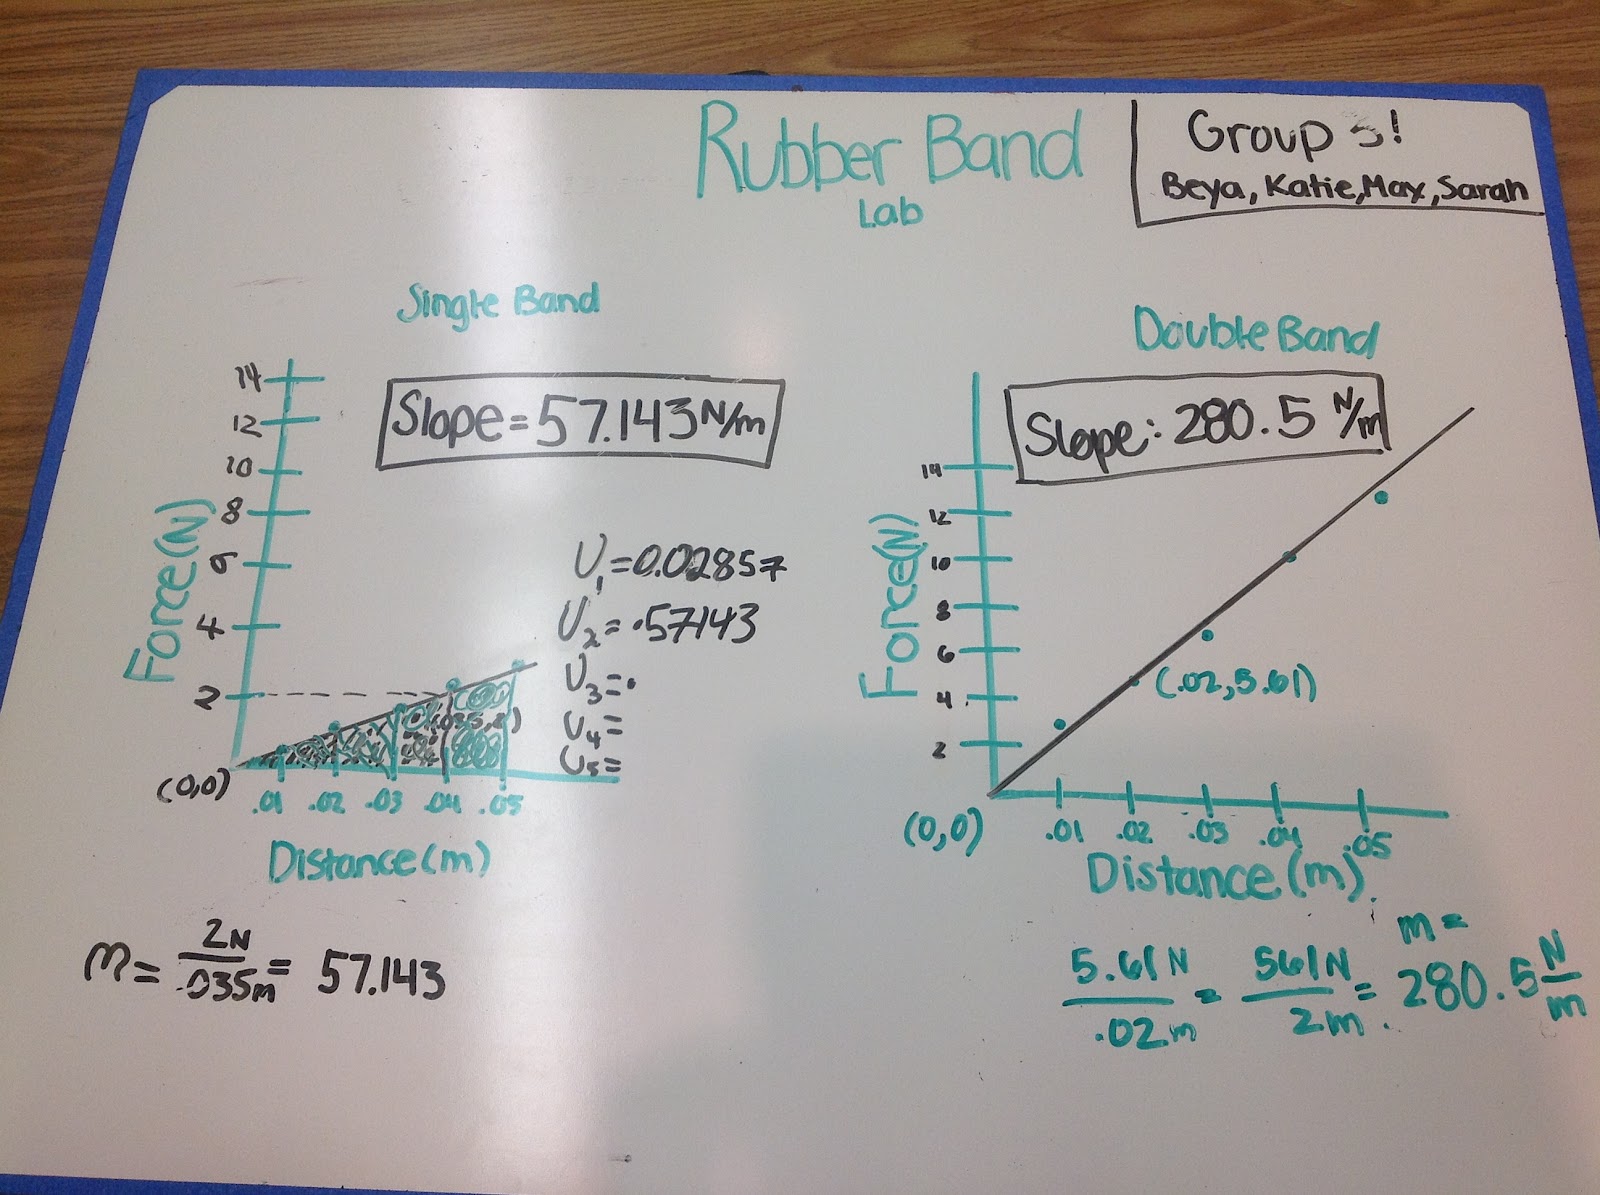 Rubber Band
Lab
Group 3!
Beya, Katie, Max, Sarah
Single Band
Slope = 57.143 N/m
14
12
10
8
6
4
2
Force (N)
(0,0)
.01 .02 .03 .04 .05
Distance (m)
U₁ = 0.02857
U₂ = .57143
U₃ = .
U₄ =
U₅ =
m = 2N/.035m = 57.143
Double Band
Slope: 280.5 N/m
14
12
10
8
6
4
2
Force (N)
(.02, 5.61)
(0,0)
.01 .02 .03 .04 .05
Distance (m)
m =
5.61N/.02m = 561N/2m = 280.5 N/m